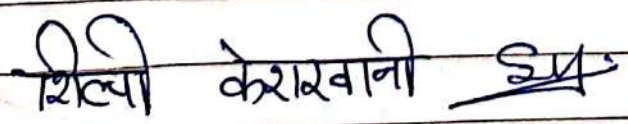 शिल्पी केशरवानी